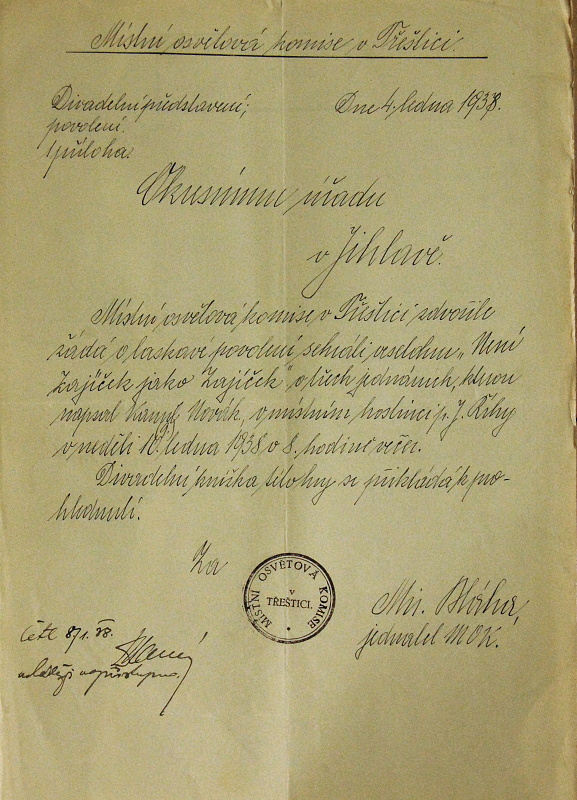 Místní osvětová komise v Třeštici.
Divadelní představení;
povolení.
1 příloha.
Dne 4. ledna 1938.
Okresnímu úřadu
v Jihlavě.
Místní osvětová komise v Třeštici zdvořile
žádá o laskavé povolení sehráti veselohru „Není
zajíček jako Zajíček" o třech jednáních, kterou
napsal Novák, v místním hostinci p. J. Křihy
v neděli ledna 1938 o 8. hodině večer.
Divadelní knížka této hry se přikládá k pro-
hlédnutí.
Za
MÍSTNÍ OSVĚTOVÁ KOMISE
V
TŘEŠTICI.
jednatel MOK.
četl 8/1. 38.